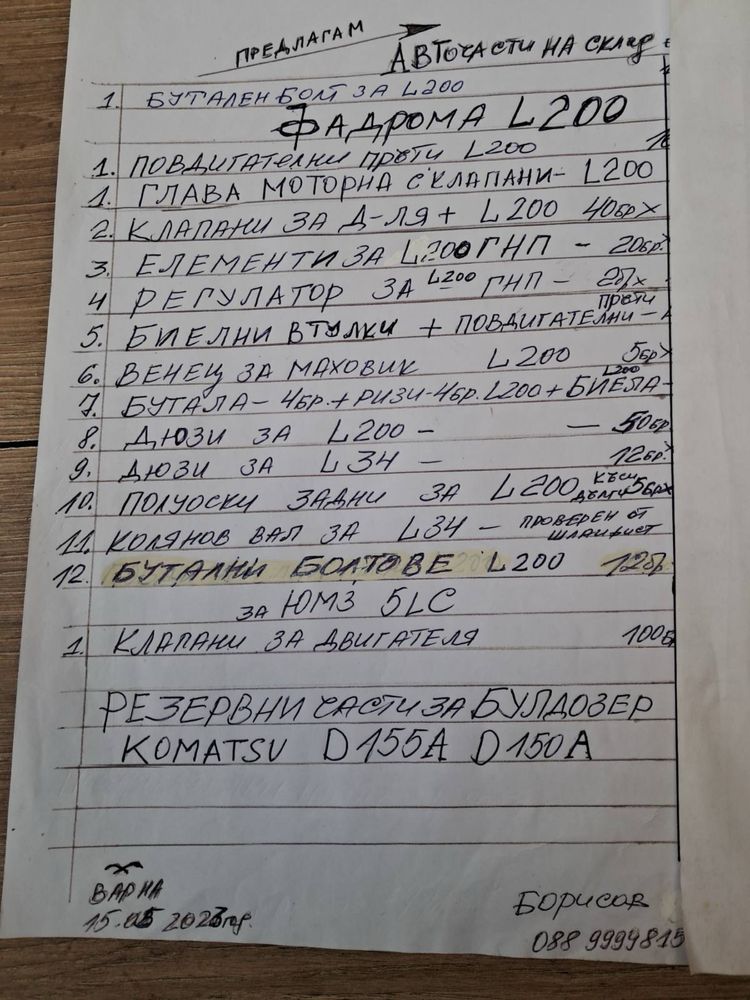 ПРЕДЛАГАМ
АВТОЧАСТИ НА СКЛАД
1. БУТАЛЕН БОЛТ ЗА L200
ФАДРОМА L200
1. ПОВДИГАТЕЛНИ ПРЪТИ L200
1. ГЛАВА МОТОРНА С КЛАПАНИ- L200
2. КЛАПАНИ ЗА Д-ЛЯ + L200 40бр
3. ЕЛЕМЕНТИ ЗА L200 ГНП - 20бр.
4 РЕГУЛАТОР ЗА L200 ГНП - 2бр
5. БИЕЛНИ ВТУЛКИ + ПОВДИГАТЕЛНИ ПРЪТИ -
6. ВЕНЕЦ ЗА МАХОВИК L200 5бр
7. БУТАЛА- 4бр. + РИЗИ-4бр. L200 + БИЕЛА L200 -
8. ДЮЗИ ЗА L200 - - 50бр
9. ДЮЗИ ЗА L34 - 12бр.
10. ПОЛУОСКИ ЗАДНИ ЗА L200 КЪСИ ДЪЛГИ 5бр
11. КОЛЯНОВ ВАЛ ЗА L34 - ПРОВЕРЕН ОТ ШЛАЙФИСТ
12. БУТАЛНИ БОЛТОВЕ L200 12бр.
ЗА ЮМЗ 5LC
1. КЛАПАНИ ЗА ДВИГАТЕЛЯ 100б
РЕЗЕРВНИ ЧАСТИ ЗА БУЛДОЗЕР
KOMATSU D155A D150A
ВАРНА
15.05 2023год.
БОРИСОВ
088 9999815